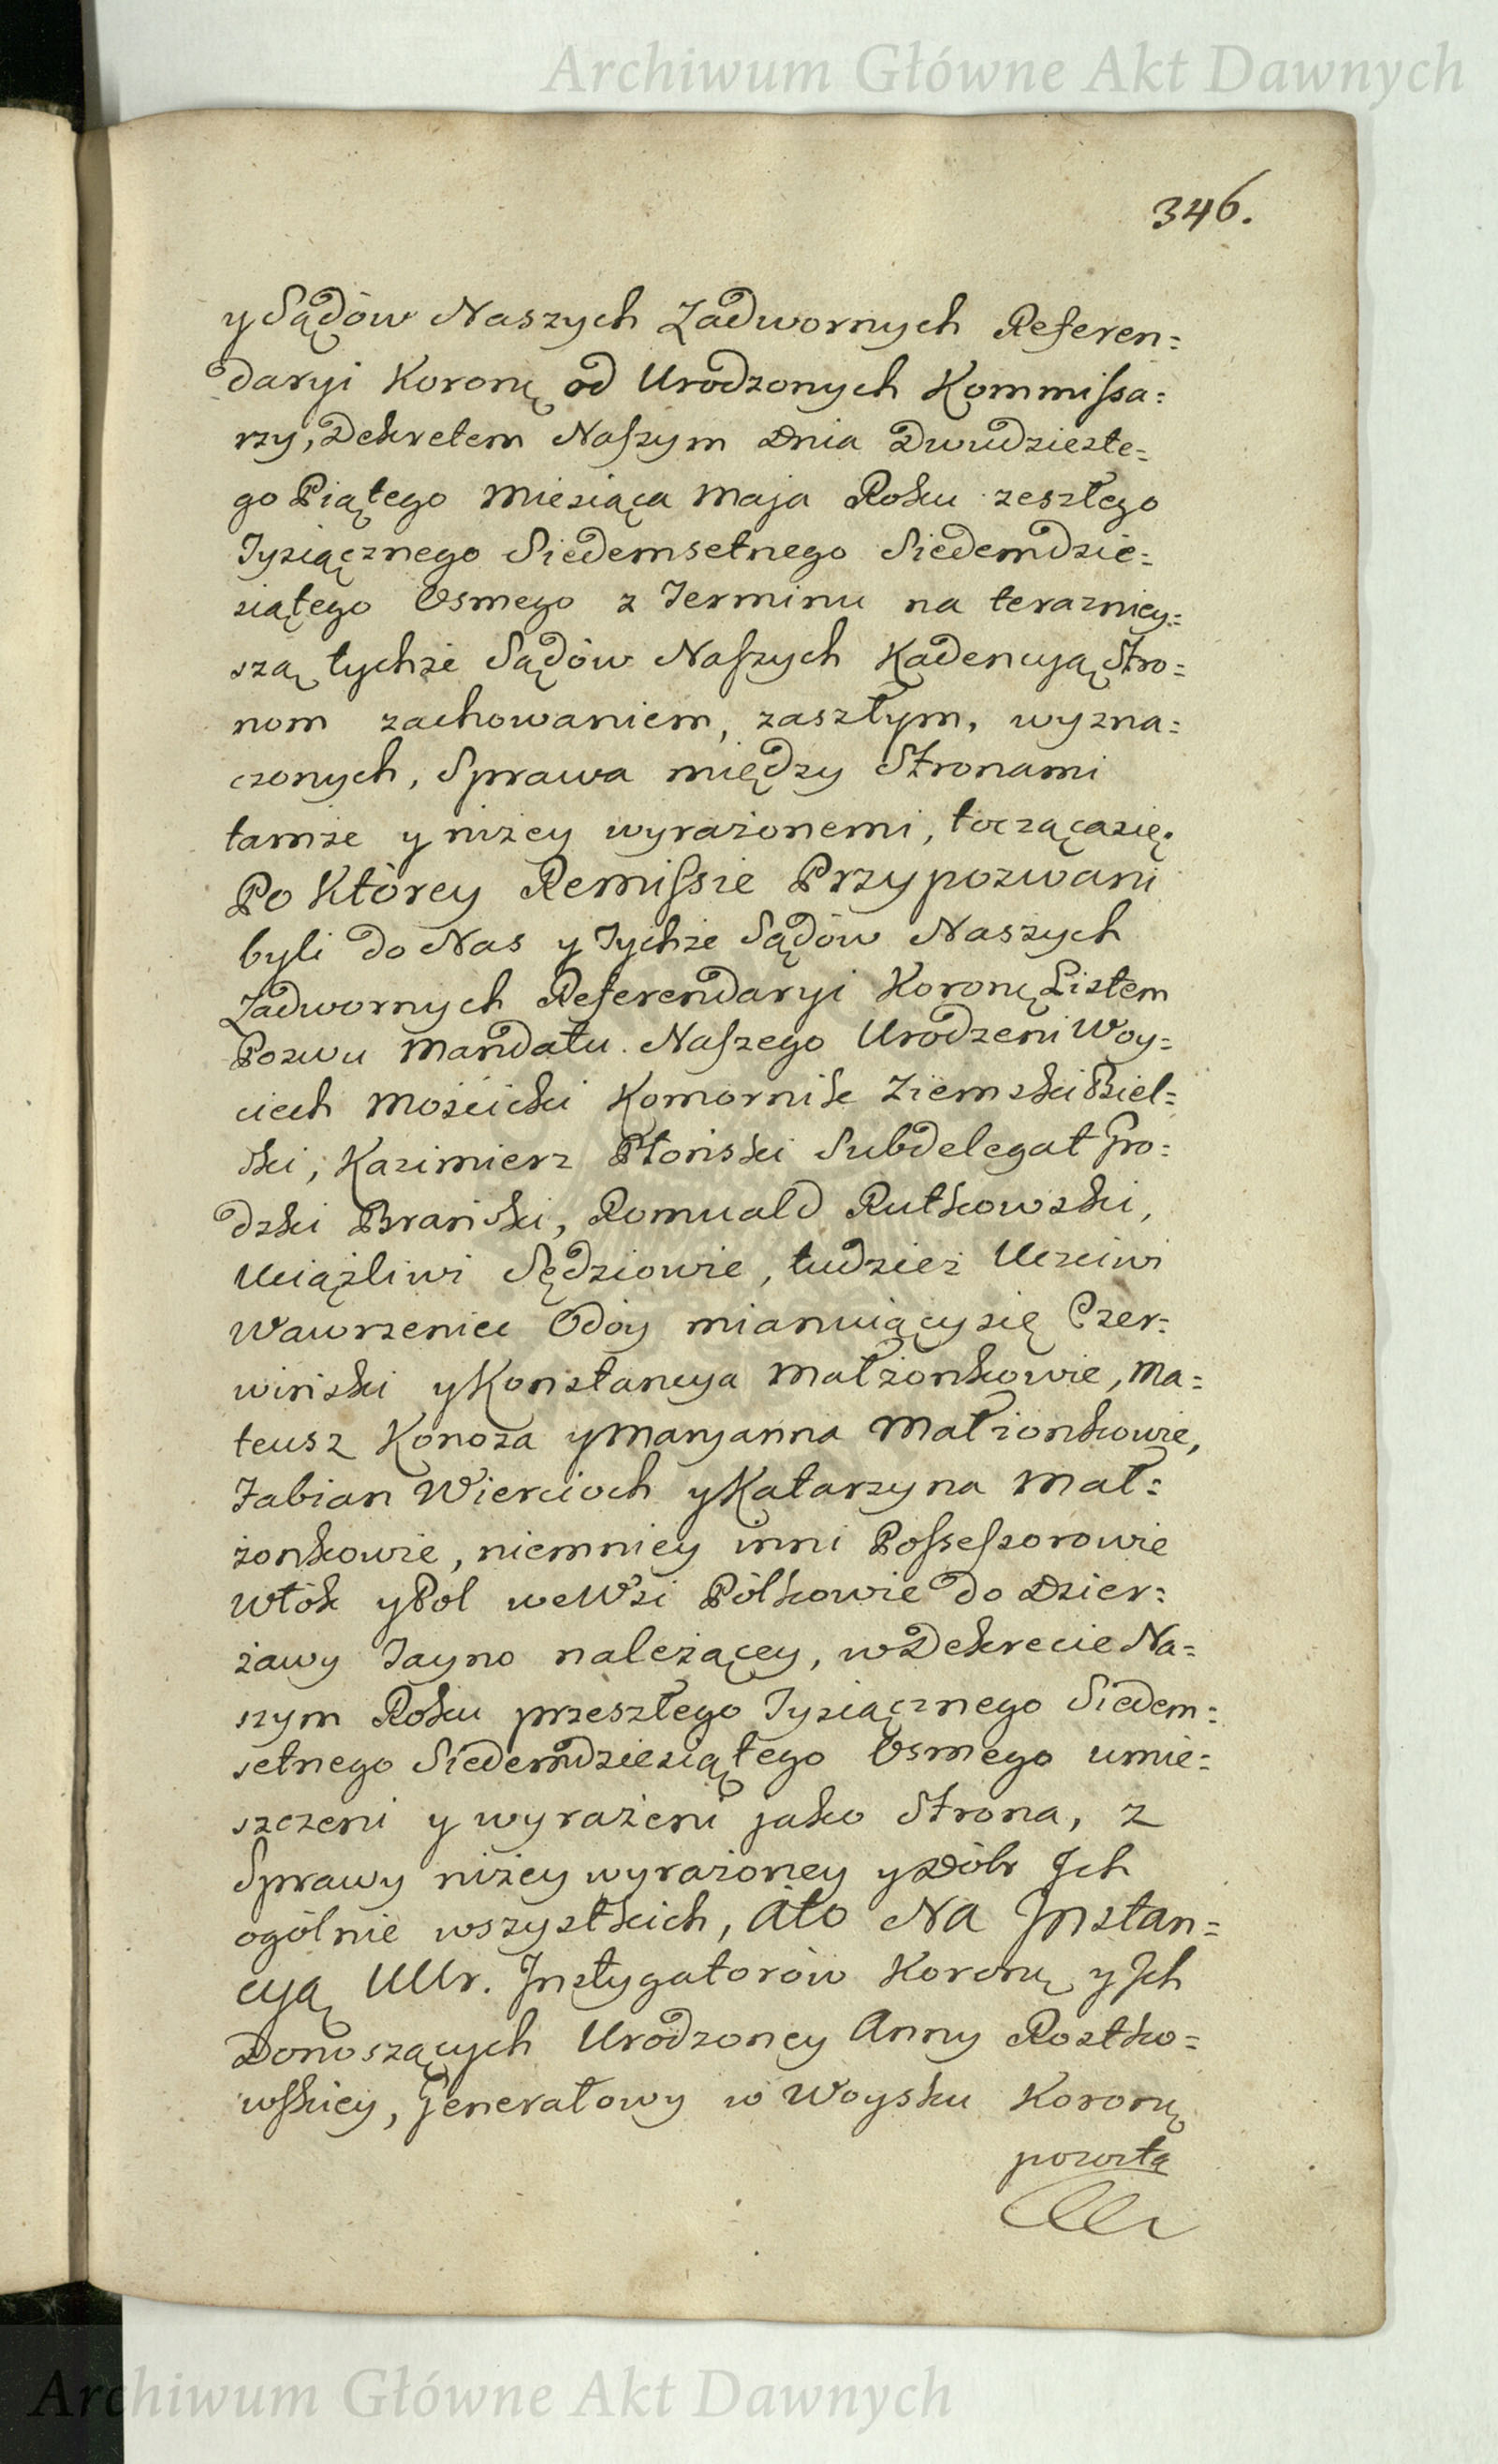 Archiwum Główne Akt Dawnych
346.
y Sądów Naszych Zadwornych Referen=
daryi Koronę od Urodzonych Kommissa=
rzy, Dekretem Naszym Dnia Dwudzieste=
go Piątego Miesiąca Maja Roku zeszłego
Tysiącznego Siedemsetnego Siedemdzie=
siątego Osmego z Terminu na terazniey=
szą tychże Sądów Naszych Kadencyą Stro=
nom zachowaniem, zaszłym, wyzna=
czonych, Sprawa między Stronami
tamże y niżey wyrażonemi, tocząca się.
Po Którey Remissie Przypozwani
byli do Nas y Tychże Sądów Naszych
Zadwornych Referendaryi Koronę Listem
Pozwu Mandatu Naszego Urodzeni Woy=
ciech Mościcki Komornik Ziemski Biel=
ski, Kazimierz Płoński Subdelegat Gro=
dzki Brański, Romuald Rutkowski,
Uciążliwi Sędziowie, tudzież Uczciwi
Wawrzeniec Odoy mianuiący się Czer=
wiński y Konstancya Małżonkowie, Ma=
teusz Konoza y Maryanna Małżonkowie,
Fabian Wiercioch y Katarzyna Mał=
żonkowie, niemniey inni Possessorowie
Włók y Pol we Wsi Półkowie do Dzier=
żawy Jayno należącey, w Dekrecie Na=
szym Roku przeszłego Tysiącznego Siedem=
setnego Siedemdziesiątego Osmego umie=
szczeni y wyrażeni jako Strona, z
Sprawy niżey wyrażoney y Dóbr Ich
ogólnie wszystkich, Ato Na Instan=
cyą UUr. Instygatorów Koronę y Ich
Donoszących Urodzoney Anny Rostko=
wskiey, Generałowy w Woysku Koronę
pozosta
Archiwum Główne Akt Dawnych